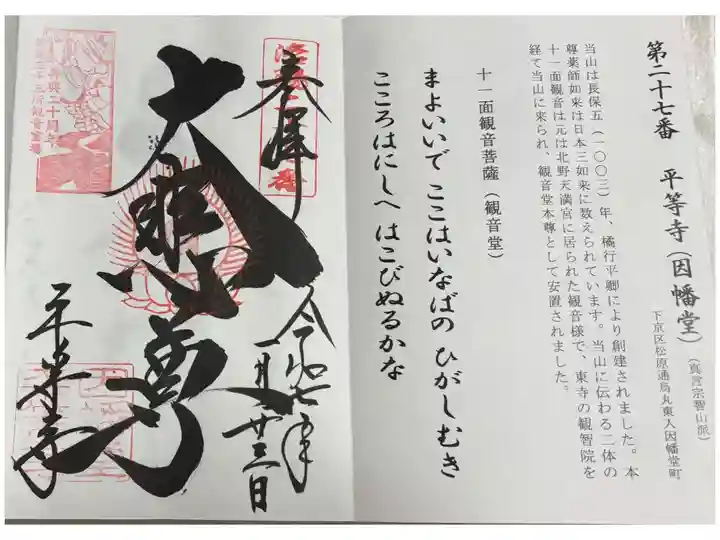 第二十七番　平等寺（因幡堂）
（真言宗智山派）
下京区松原通烏丸東入因幡堂町
当山は長保五（一〇〇三）年、橘行平卿により創建されました。本
尊薬師如来は日本三如来に数えられています。当山に伝わる二体の
十一面観音は元は北野天満宮に居られた観音様で、東寺の観智院を
経て当山に来られ、観音堂本尊として安置されました。
十一面観音菩薩（観音堂）
まよいいで ここはいなばの ひがしむき
こころはにしへ はこびぬるかな
奉拝
令和七年
一月廿三日
大悲尊
平等寺
再興二十周年